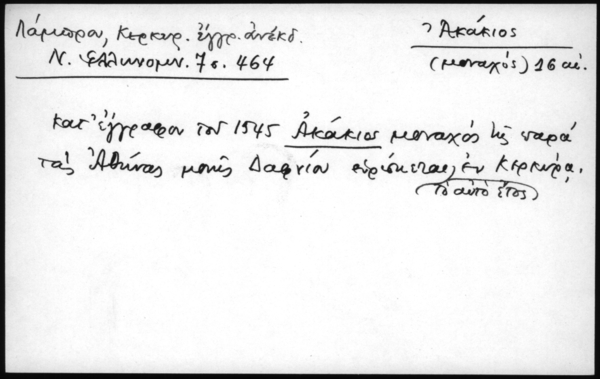 Λάμπρου, Κερκυρ. ἔγγρ. ἀνέκδ.
Ν. Ἑλληνομν. 7 σ. 464
Ἀκάκιος
(μοναχός) 16 αἰ.
Κατ' ἔγγραφον τοῦ 1545 Ἀκάκιος μοναχός τῆς παρά
τάς Ἀθήνας μονῆς Δαφνίου εὑρίσκεται ἐν Κερκύρᾳ.
(τό αὐτό ἔτος)